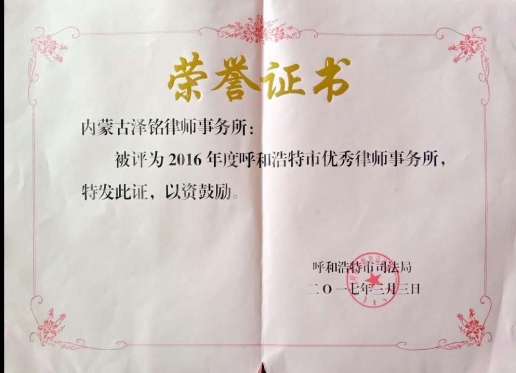 荣誉证书
内蒙古泽铭律师事务所：
被评为2016年度呼和浩特市优秀律师事务所，
特发此证，以资鼓励。
呼和浩特市司法局
二〇一七年三月三日